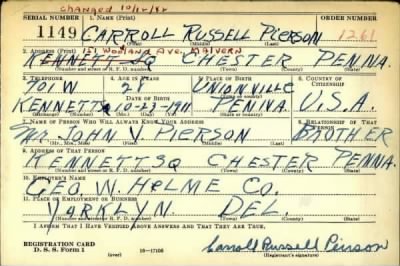 Changed 10/12/42
SERIAL NUMBER 1. NAME (Print)
1149 CARROLL RUSSELL PIERSON 1261
(First) (Middle) (Last)
151 Woodland Ave, Malvern
2. ADDRESS (Print)
KENNETT SQ CHESTER PENNA.
(Number and street or R. F. D. number) (Town) (County) (State)
3. TELEPHONE 4. AGE IN YEARS 5. PLACE OF BIRTH 6. COUNTRY OF CITIZENSHIP
701W 28 UNIONVILLE
DATE OF BIRTH
KENNETT 10-23-1911 PENNA. U.S.A.
(Exchange) (Number) (Mo.) (Day) (Yr.) (State or country)
7. NAME OF PERSON WHO WILL ALWAYS KNOW YOUR ADDRESS 8. RELATIONSHIP OF THAT PERSON
Mr. JOHN V PIERSON BROTHER
(Mr., Mrs., Miss) (First) (Middle) (Last)
9. ADDRESS OF THAT PERSON
KENNETT SQ CHESTER PENNA.
(Number and street or R. F. D. number) (Town) (County) (State)
10. EMPLOYER'S NAME
GEO. W. HELME CO.
11. PLACE OF EMPLOYMENT OR BUSINESS
YARKLYN. DEL.
(Number and street or R. F. D. number) (Town) (County) (State)
I AFFIRM THAT I HAVE VERIFIED ABOVE ANSWERS AND THAT THEY ARE TRUE.
REGISTRATION CARD
D. S. S. Form 1 (over) 16—17105 Carroll Russell Pierson
(Registrant's signature)